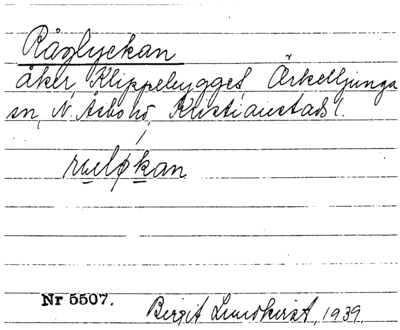 Råglyckan
åker, Klippebygget, Örkelljunga
sn, N. Åsbo hd, Kristianstads l.
Nr 5507.
Birgit Lundkvist, 1939